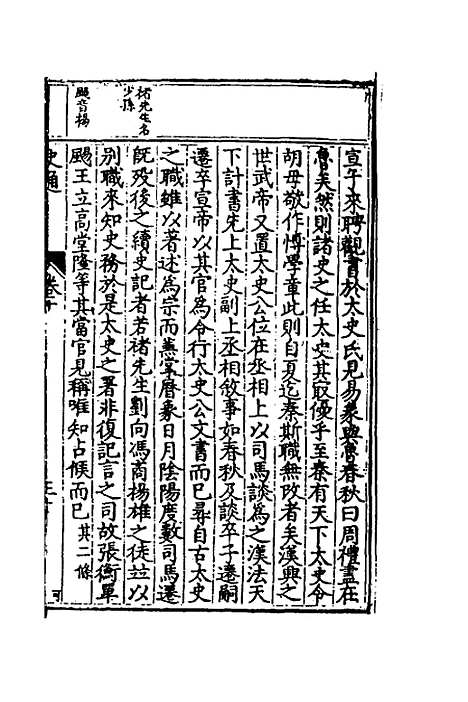 宣子來聘觀書於太史氏見易象與魯春秋曰周禮盡在
魯矣然則諸史之任太史其最優乎至秦有天下太史令
胡毋敬作博學章此則自夏迄秦斯職無改者矣漢興之
世武帝又置太史公位在丞相上以司馬談為之漢法天
下計書先上太史副上丞相敘事如春秋及談卒子遷嗣
遷卒宣帝以其官為令行太史公文書而已尋自古太史
之職雖以著述為宗而兼掌曆象日月陰陽度數司馬遷
既歿後之續史記者若褚先生劉向馮商楊雄之徒並以
別職來知史務於是太史之署非復記言之司故張衡單
颺王立高堂隆等其當官見稱唯知占候而已其二條
褚先生名
少孫
颺音楊
史通
卷十